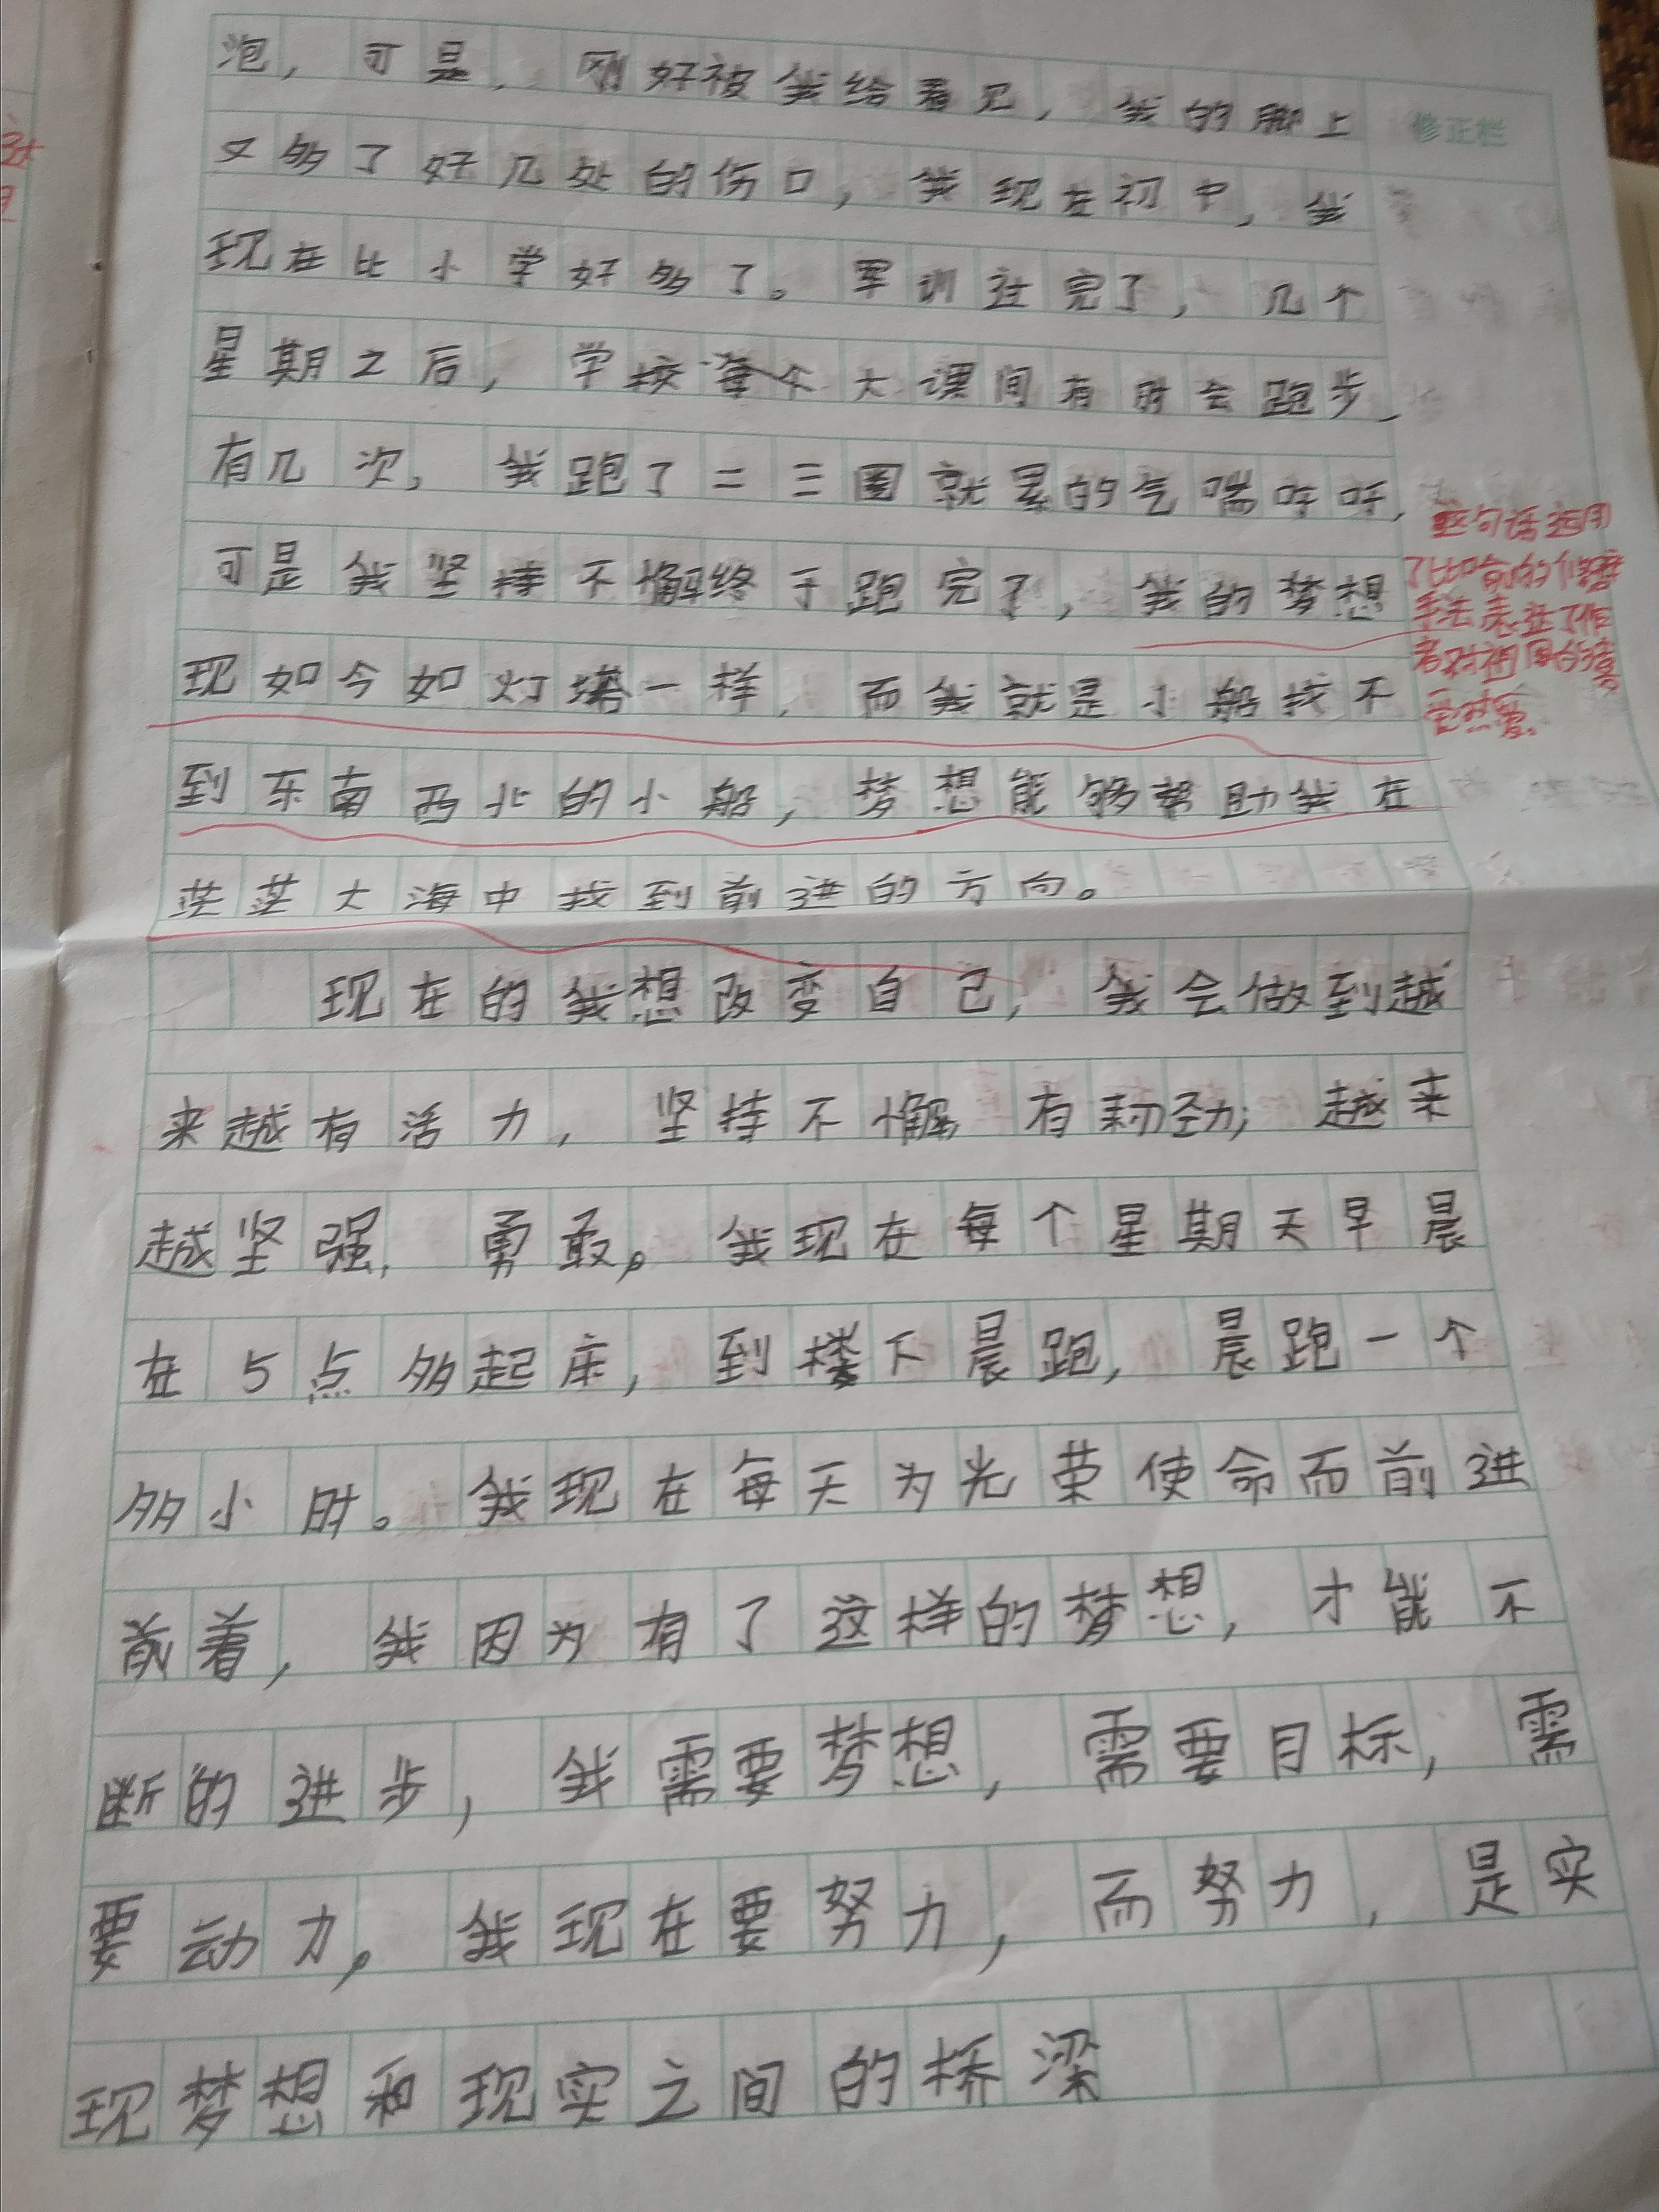 泡，可是，刚好被我给看见，我的脚上
修正栏
又多了好几处的伤口，我现在初中，我
现在比小学好多了。军训过完了，几个
星期之后，学校每个大课间有时会跑步，
有几次，我跑了二三圈就累的气喘呼呼，
可是我坚持不懈终于跑完了，我的梦想
现如今如灯塔一样，而我就是小船找不
到东南西北的小船，梦想能够帮助我在
茫茫大海中找到前进的方向。
这句话运用
了比喻的修辞
手法表达了作
者对祖国的
热爱。
现在的我想改变自己，我会做到越
来越有活力，坚持不懈，有韧劲；越来
越坚强，勇敢。我现在每个星期天早晨
在5点多起床，到楼下晨跑，晨跑一个
多小时。我现在每天为光荣使命而前进
前着，我因为有了这样的梦想，才能不
断的进步，我需要梦想，需要目标，需
要动力。我现在要努力，而努力，是实
现梦想和现实之间的桥梁